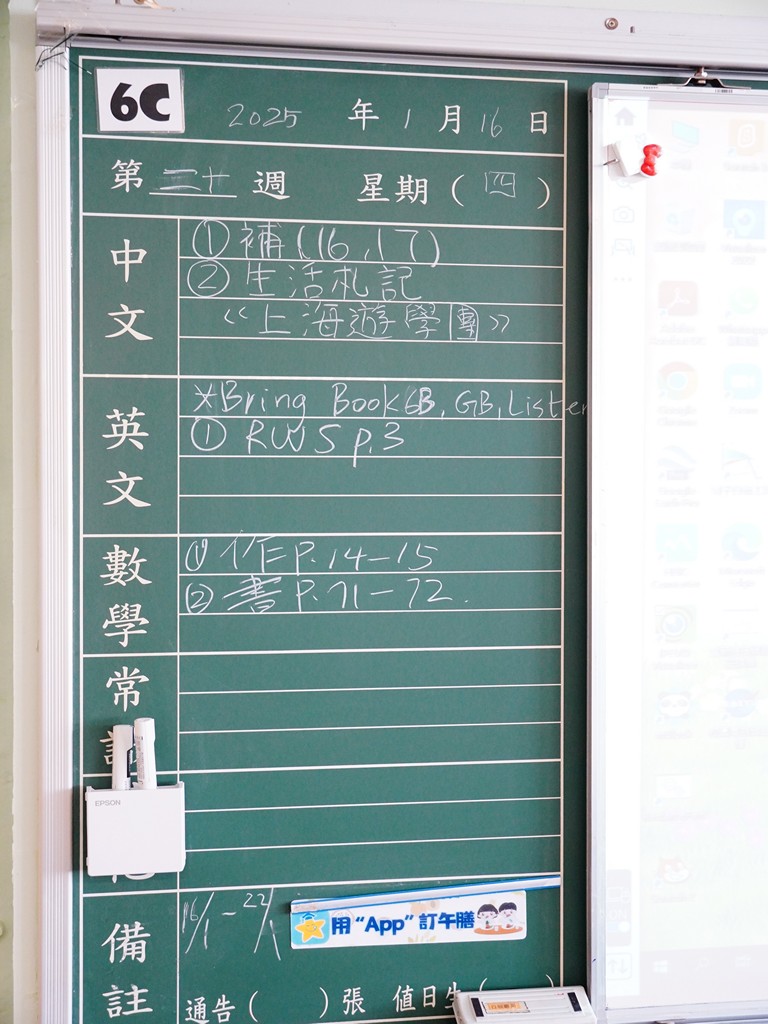 6C
2025 年 1 月 16 日
第 二十 週 星期 ( 四 )
中文
① 補 (16, 17)
② 生活札記
《上海遊學團》
英文
*Bring Book 6B, GB, Listen
① RWS p.3
數學
① 作 P. 14-15
② 書 P. 71-72.
常
EPSON
備註
16/1 - 22/1
用“App”訂午膳
通告 ( ) 張 值日生 (